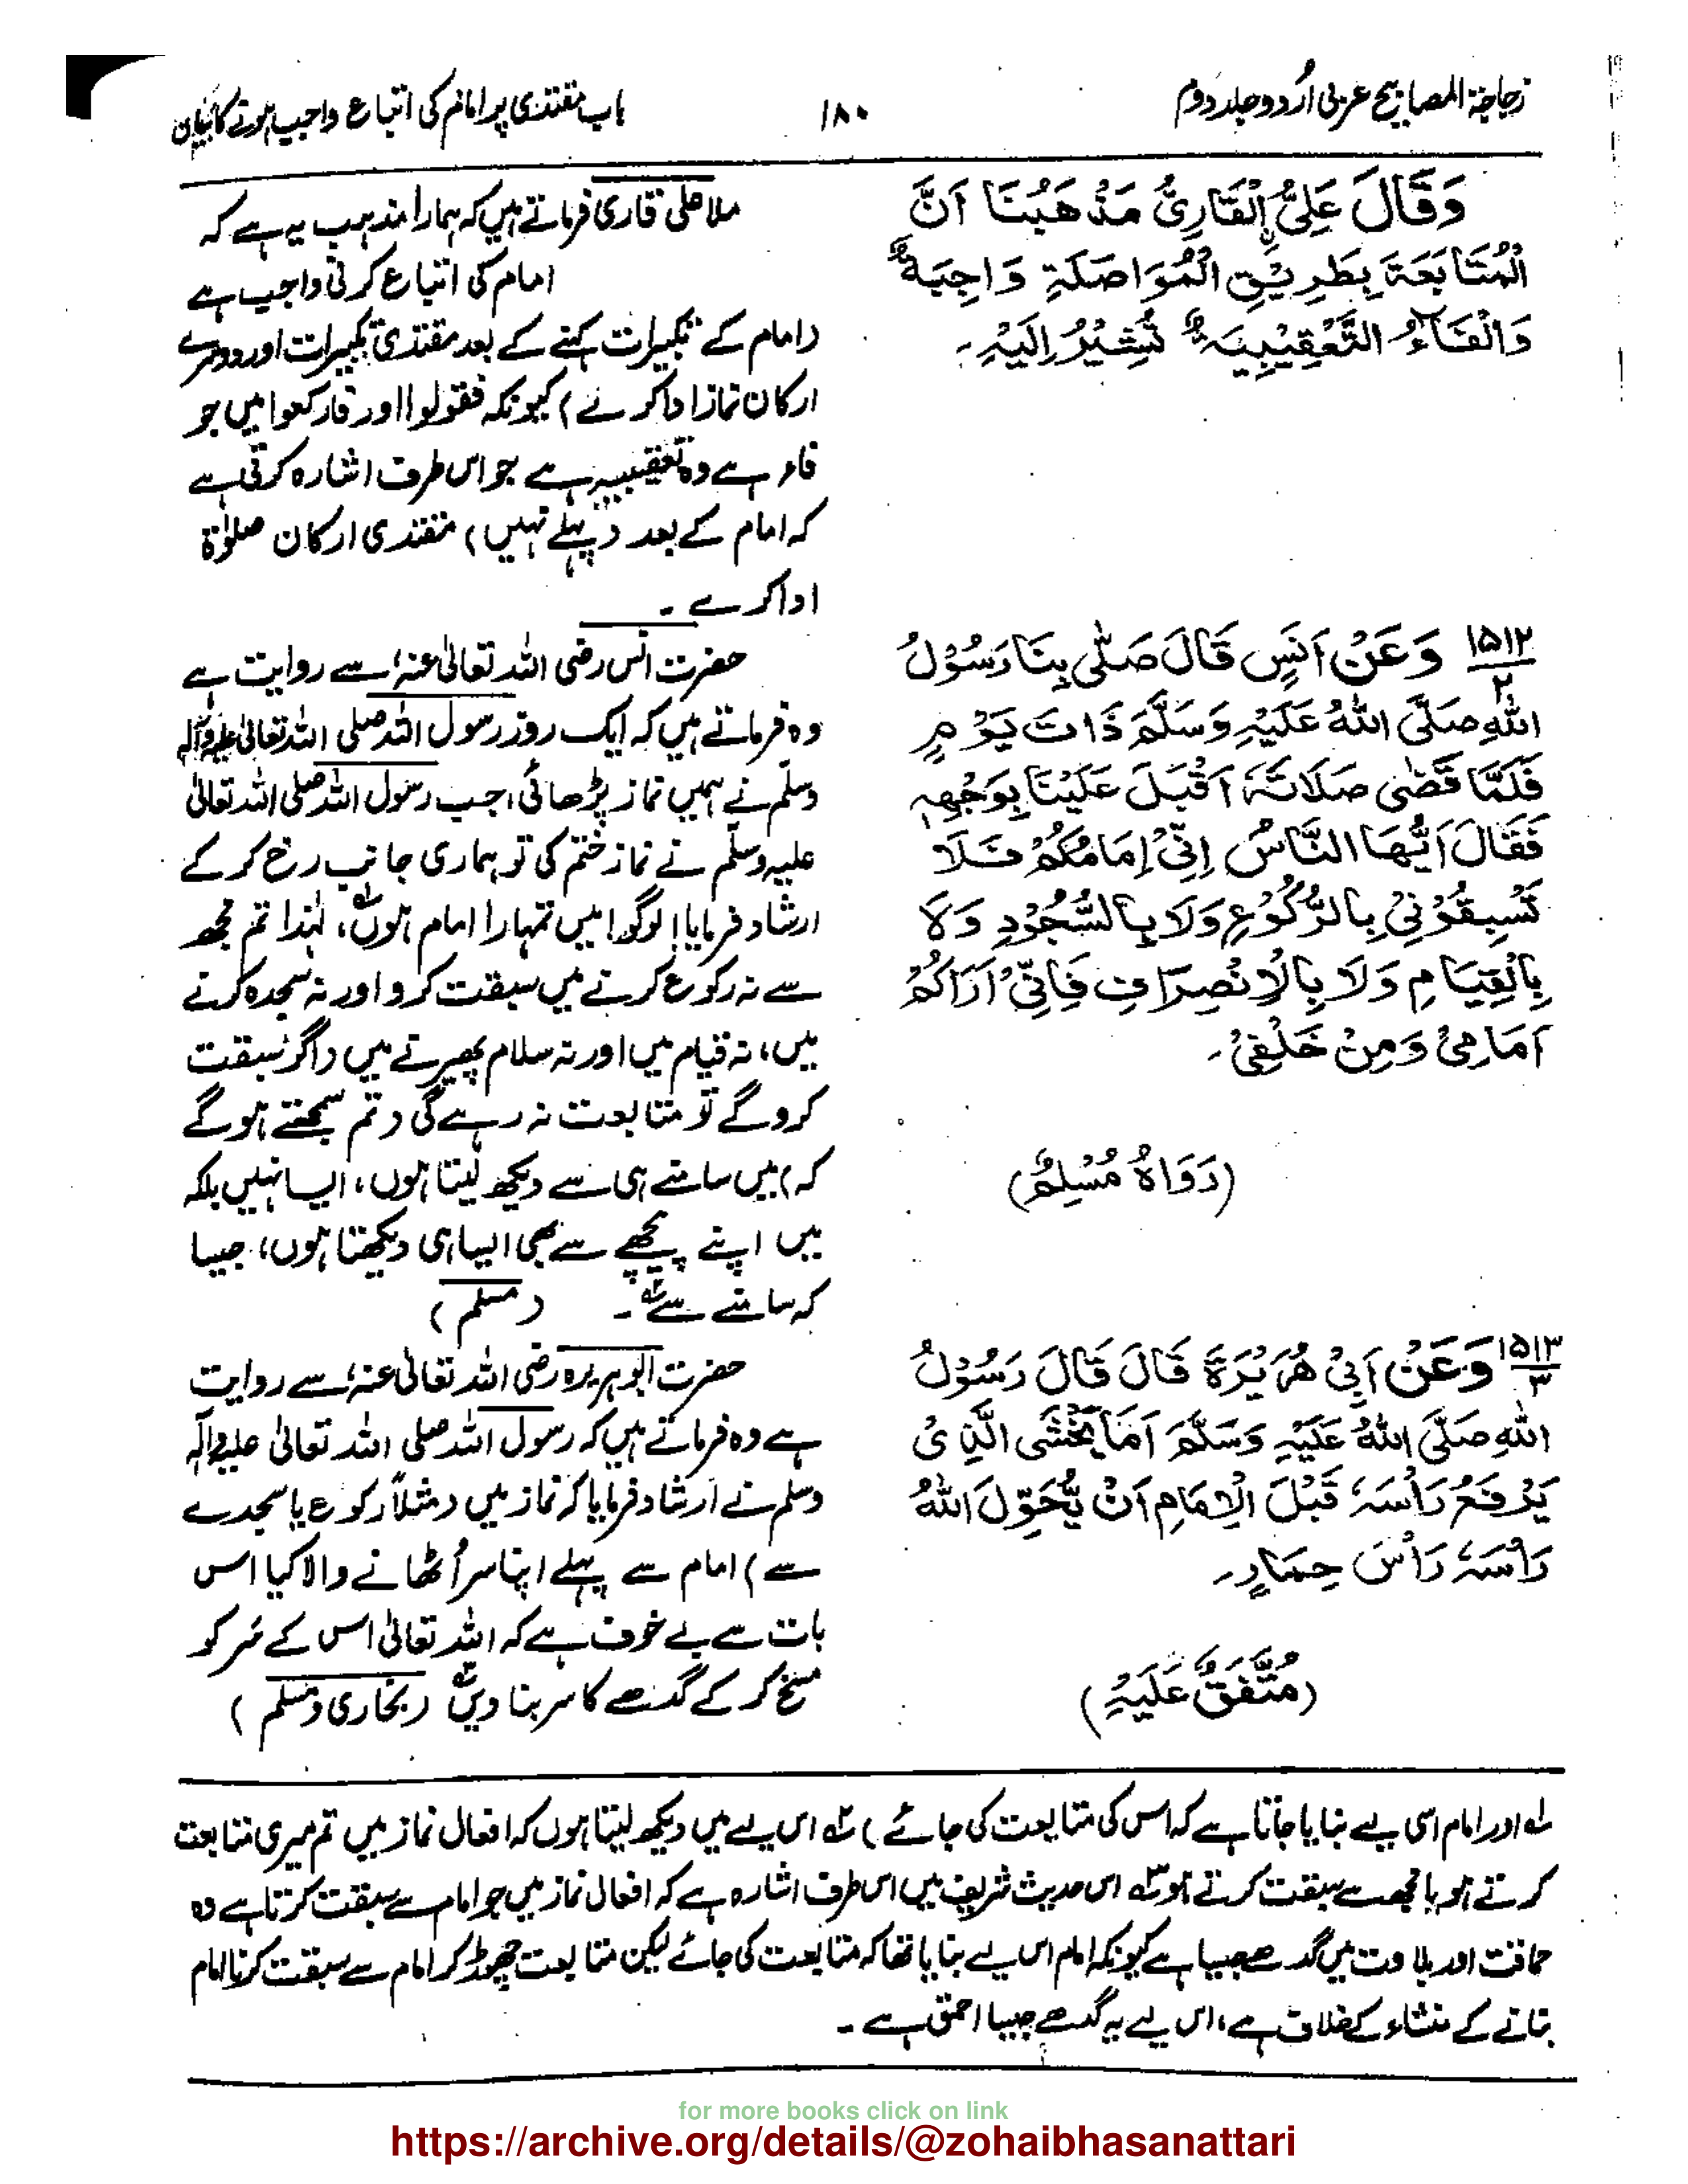 زجاجۃ المصابیح عربی اُردو جلد دوم
۱۸۰
باب مقتدی پر امام کی اتباع واجب ہونے کا بیان
وَقَالَ عَلِيُّ الْقَارِیُّ مَذْهَبُنَا اَنَّ
الْمُتَابَعَةَ بِطَرِيْقِ الْمُوَاصَلَةِ وَاجِبَةٌ
وَالْفَاءُ التَّعْقِيْبِيَةُ تُشِيْرُ اِلَيْهِ۔
ملا علی قاری فرماتے ہیں کہ ہمارا مذہب یہ ہے کہ
امام کی اتباع کرنی واجب ہے
(امام کے تکبیرات کہنے کے بعد مقتدی تکبیرات اور دوسرے
ارکان نماز ادا کرے) کیونکہ فقولوا اور فارکعوا میں جو
فاء ہے وہ تعقیبیہ ہے جو اس طرف اشارہ کرتی ہے
کہ امام کے بعد (پہلے نہیں) مقتدی ارکان صلوٰۃ
ادا کرے ۔
۱۵۱۲
۲
وَعَنْ اَنَسٍ قَالَ صَلّٰى بِنَا رَسُوْلُ
اللّٰهِ صَلَّى اللّٰهُ عَلَيْهِ وَسَلَّمَ ذَاتَ يَوْمٍ
فَلَمَّا قَضٰى صَلَاتَهٗ اَقْبَلَ عَلَيْنَا بِوَجْهِهٖ
فَقَالَ اَيُّهَا النَّاسُ اِنِّيْ اِمَامُكُمْ فَلَا
تَسْبِقُوْنِيْ بِالرُّكُوْعِ وَلَا بِالسُّجُوْدِ وَلَا
بِالْقِيَامِ وَلَا بِالْاِنْصِرَافِ فَاِنِّيْ اَرَاكُمْ
اَمَامِيْ وَمِنْ خَلْفِيْ۔
(رَوَاهُ مُسْلِمٌ)
حضرت انس رضی اللہ تعالیٰ عنہ سے روایت ہے
وہ فرماتے ہیں کہ ایک روز رسول اللہ صلی اللہ تعالیٰ علیہ وآلہ
وسلم نے ہمیں نماز پڑھائی، جب رسول اللہ صلی اللہ تعالیٰ
علیہ وسلم نے نماز ختم کی تو ہماری جانب رخ کر کے
ارشاد فرمایا! لوگو! میں تمہارا امام ہوں ؎۱، لہٰذا تم مجھ
سے نہ رکوع کرنے میں سبقت کرو اور نہ سجدہ کرنے
میں، نہ قیام میں اور نہ سلام پھیرنے میں (اگر سبقت
کرو گے تو متابعت نہ رہے گی (تم سمجھتے ہو گے
کہ) میں سامنے ہی سے دیکھ لیتا ہوں، ایسا نہیں بلکہ
میں اپنے پیچھے سے بھی ایسا ہی دیکھتا ہوں، جیسا
کہ سامنے سے ؎۲ ۔ (مسلم)
۱۵۱۳
۳
وَعَنْ اَبِيْ هُرَيْرَةَ قَالَ قَالَ رَسُوْلُ
اللّٰهِ صَلَّى اللّٰهُ عَلَيْهِ وَسَلَّمَ اَمَا يَخْشَى الَّذِيْ
يَرْفَعُ رَاْسَهٗ قَبْلَ الْاِمَامِ اَنْ يُّحَوِّلَ اللّٰهُ
رَاْسَهٗ رَاْسَ حِمَارٍ۔
(مُتَّفَقٌ عَلَيْهِ)
حضرت ابو ہریرہ رضی اللہ تعالیٰ عنہ سے روایت
ہے وہ فرماتے ہیں کہ رسول اللہ صلی اللہ تعالیٰ علیہ وآلہ
وسلم نے ارشاد فرمایا کہ نماز میں (مثلاً رکوع یا سجدے
سے) امام سے پہلے اپنا سر اُٹھانے والا کیا اس
بات سے بے خوف ہے کہ اللہ تعالیٰ اس کے سر کو
مسخ کر کے گدھے کا سر بنا دیں ؎۳ (بخاری و مسلم)
؎۱ اور امام اسی لیے بنایا جاتا ہے کہ اس کی متابعت کی جائے) ؎۲ اس لیے میں دیکھ لیتا ہوں کہ افعال نماز میں تم میری متابعت
کرتے ہو یا مجھ سے سبقت کرتے ہو ؎۳ اس حدیث شریف میں اس طرف اشارہ ہے کہ افعال نماز میں جو امام سے سبقت کرتا ہے وہ
حماقت اور بلادت میں گدھے جیسا ہے کیونکہ امام اس لیے بنایا تھا کہ متابعت کی جائے لیکن متابعت چھوڑ کر امام سے سبقت کرنا امام
بنانے کے منشاء کے خلاف ہے، اس لیے یہ گدھے جیسا احمق ہے ۔
for more books click on link
https://archive.org/details/@zohaibhasanattari